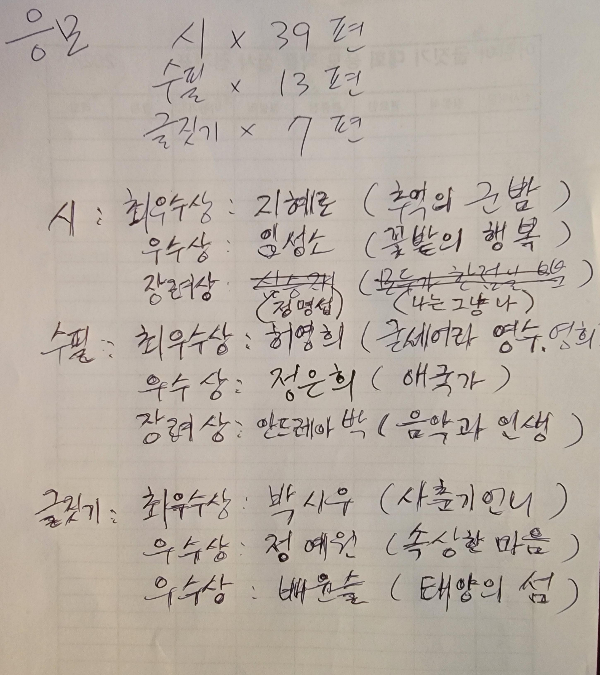 응모 시 × 39 편
수필 × 13 편
글짓기 × 7 편
시 : 최우수상 : 지혜로 (추억의 군밤)
우수상 : 임성소 (꽃밭의 행복)
장려상
(정명섭) (나는 그냥 나)
수필 : 최우수상 : 허영희 (굳세어라 영수.영희
우수상 : 정은희 (애국가)
장려상 : 안드레아 박 (음악과 인생)
글짓기 : 최우수상 : 박시우 (사춘기 언니)
우수상 : 정예원 (속상한 마음)
우수상 : 배윤슬 (태양의 섬)